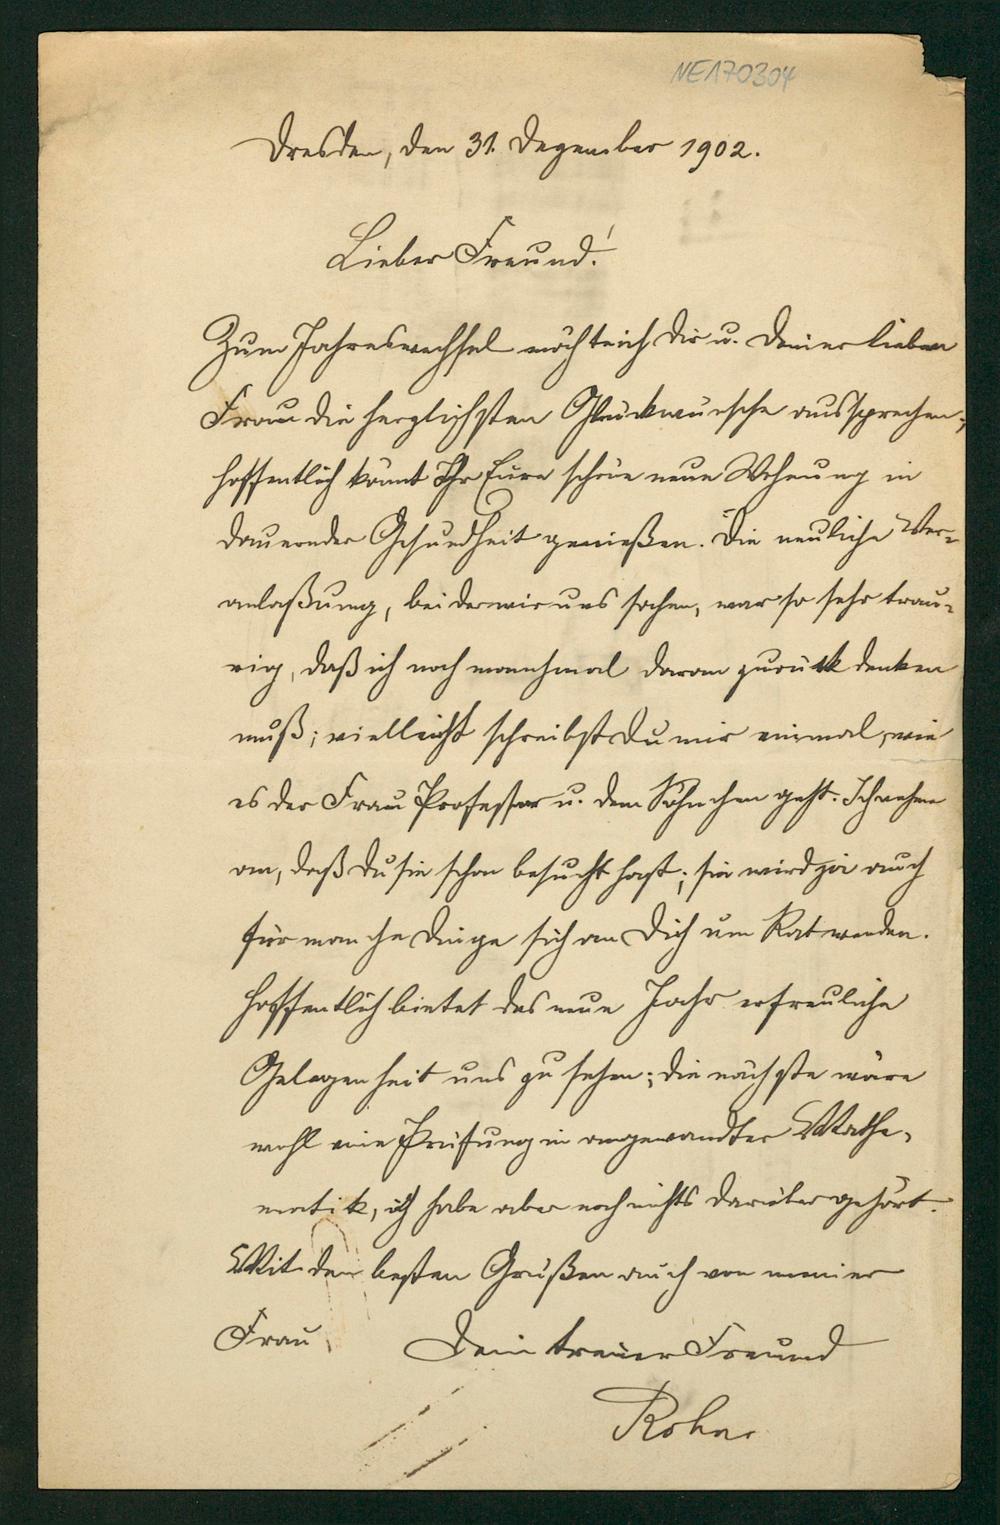 NE170304
Dresden, den 31. Dezember 1902.
Lieber Freund!
Zum Jahreswechsel möchte ich Dir u. Deiner lieben
Frau die herzlichsten Glückwünsche aussprechen;
hoffentlich könnt Ihr Eure schöne neue Wohnung in
dauernder Gesundheit genießen. Die neuliche Ver-
anlaßung, bei der wir uns sahen, war so sehr trau-
rig, daß ich noch manchmal daran zurück denken
muß; vielleicht schreibst Du mir einmal, wie
es der Frau Professor u. dem Söhnchen geht. Ich nehme
an, daß Du sie schon besucht hast; sie wird ja auch
für manche Dinge sich an Dich um Rat wenden.
Hoffentlich bietet das neue Jahr erfreuliche
Gelegenheit uns zu sehen; die nächste wäre
wohl eine Prüfung in angewandter Mathe-
matik, ich habe aber noch nichts darüber gehört.
Mit den besten Grüßen auch von meiner
Frau Dein treuer Freund
Rohn.